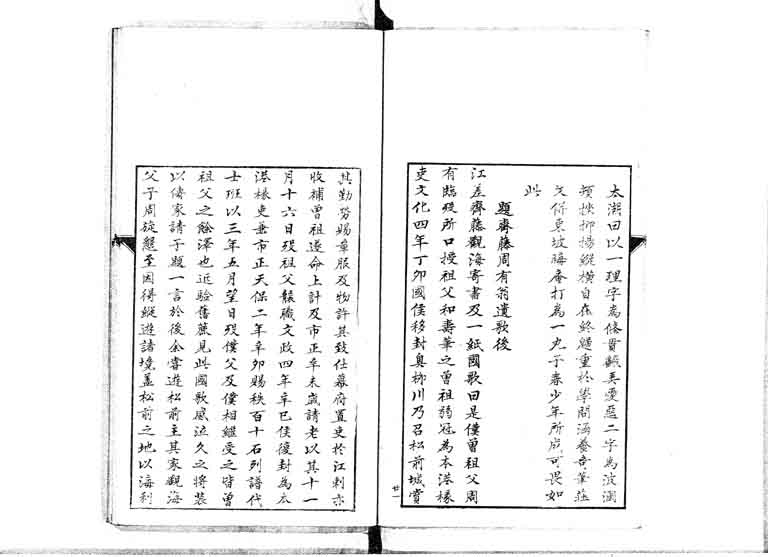 太湖曰以一理字為條貫厭美愛惡二字為波瀾
頓挫抑揚縱橫自在終歸重於學問涵養奇筆莊
文併東坡晦庵打為一丸子春少年所成可畏如
此
題齋藤周有翁遺歌後
江差齊藤觀海寄書及一紙國歌曰是僕曾祖父周
有臨歿所口授祖父和壽筆之曾祖弱冠為本港椽
吏文化四年丁卯國侯移封奧柳川乃召松前城賞
廿一
其勤勞賜章服及物許其致仕幕府置吏於江刺亦
收補曾祖遵命上計及市正辛未歲請老以其十一
月十六日歿祖父襲職文政四年辛巳侯復封為本
港椽吏兼市正天保二年辛卯賜秩百十石列譜代
士班以三年五月望日歿僕父及僕相繼受之皆曾
祖父之餘澤也近驗舊簏見此國歌感泣久之將裝
以傳家請予題一言於後余嘗遊松前主其家觀海
父子周旋懇至因得縱遊諸境蓋松前之地以海利